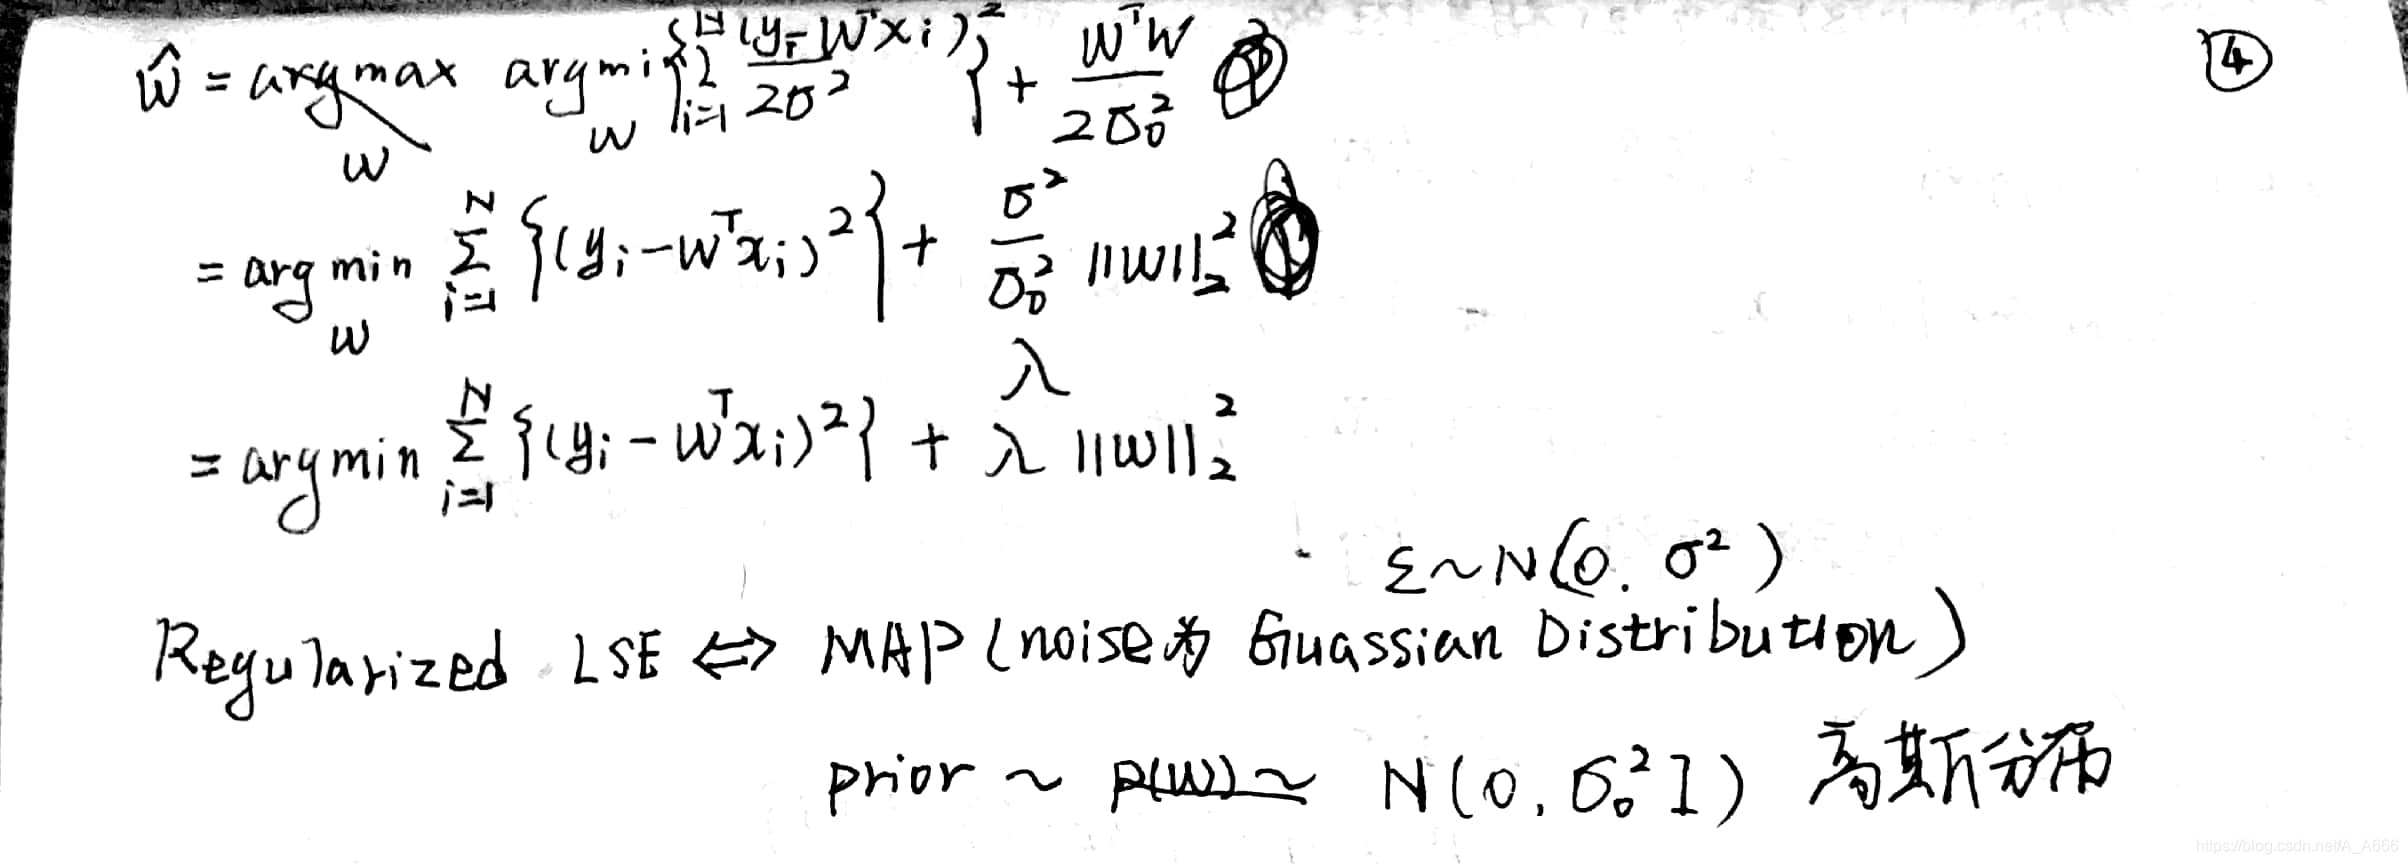 ŵ = arg max_w arg min_w {Σ_{i=1}^{N} (y_i - W^T x_i)^2 / 2σ^2} + W^T W / 2σ_0^2 ④
= arg min_w Σ_{i=1}^{N} {(y_i - W^T x_i)^2} + σ^2 / σ_0^2 ||W||_2^2
λ
= argmin Σ_{i=1}^{N} {(y_i - W^T x_i)^2} + λ ||W||_2^2
ε ~ N(0, σ^2)
Regularized LSE ⇔ MAP (noise为 Guassian Distribution)
prior ~ P(W) ~ N(0, σ_0^2 I) 高斯分布
https://blog.csdn.net/A_A666